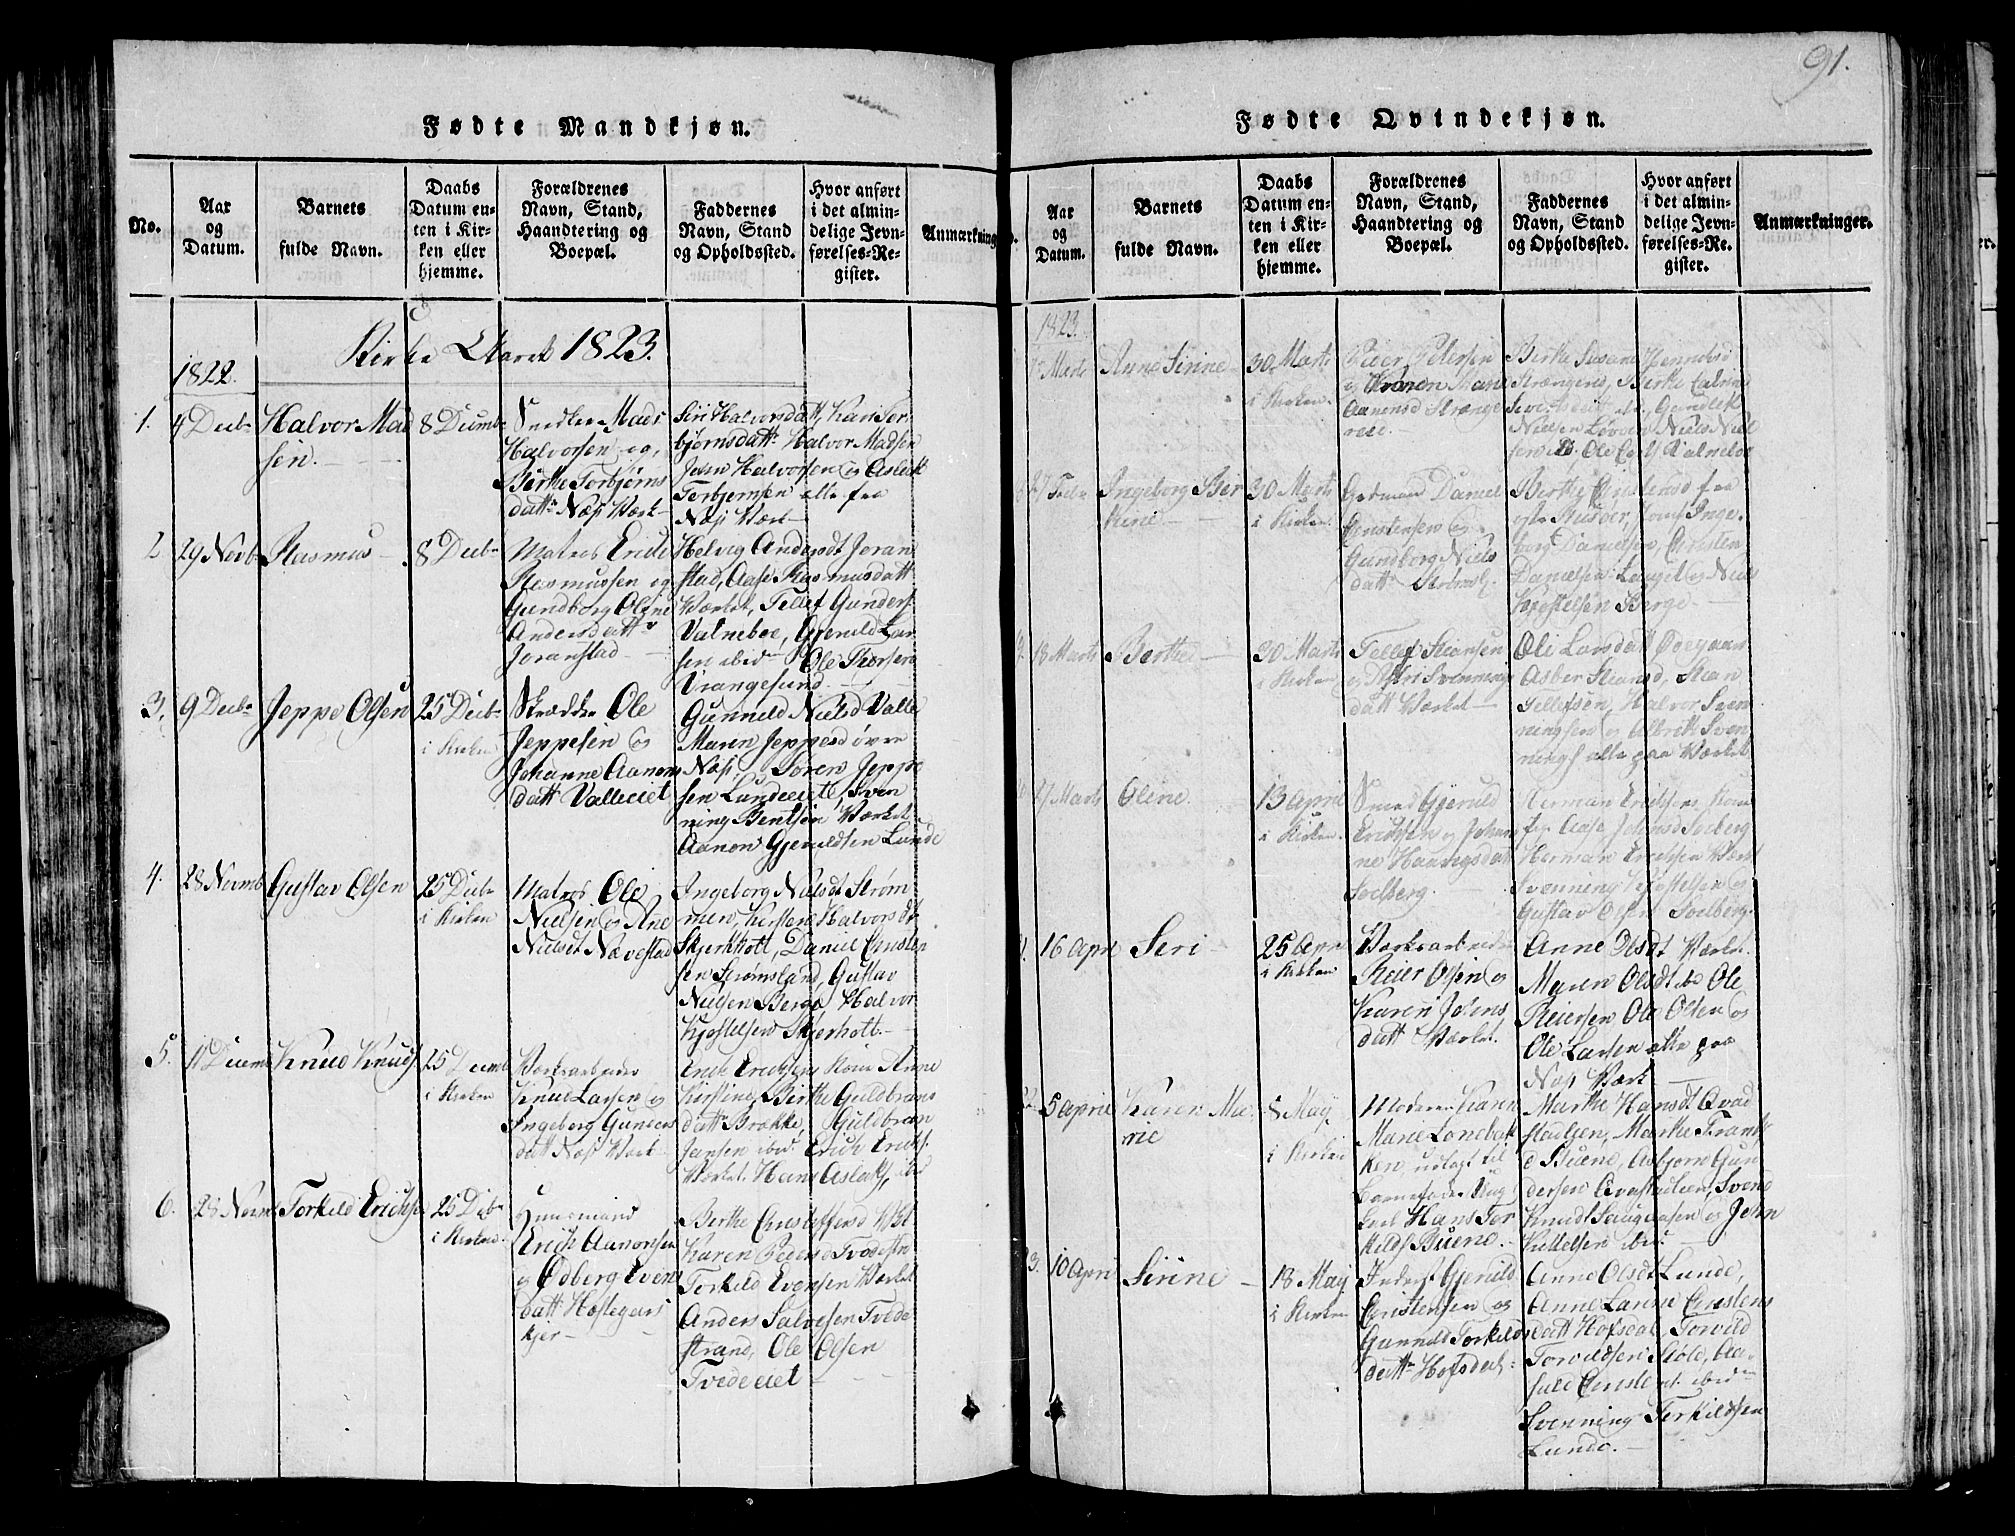 91.
Fødte Mandkjøn.
No.
Aar
og
Datum.
Barnets
fulde Navn.
Daabs
Datum en-
ten i Kir-
ken eller
hjemme.
Forældrenes
Navn, Stand,
Haandtering og
Boepæl.
Faddernes
Navn, Stand
og Opholdssted.
Hvor anført
i det almin-
delige Jevn-
førelses-Re-
gister.
Anmærkning
Kirke Aaret 1823.
1822.
1.
4 Decbr
Halvor Mad
sen.
8 Decmb
Mads
Halvorsen og
Berthe Torbjørns
datt Næs Værk
Siri Halvorsdatt, Kari Tor
bjørnsdatt Halvor Madsen
John Halvorsen og Aslak
Torbjørnsen alle fra
Næs Værk
2
29 Novb
Rasmus
8 Decbr
Matros Erich
Rasmussen og
Gundborg Oline
Andersdattr
Joranstad
Helvig Andersdt Joran
stad, Aase Rasmusdatt
Værket, Tellef Gunders
Valneboe, Gjeruld Lar
sen ibid Ole Thorsen
Vrangesund
3.
9 Decbr
Jeppe Olsen
25 Decbr
i Kirken
Skrædder Ole
Jeppesen og
Johanne Aanons
datt Valleeiet
Gunneld Nielsd Valle
Maren Jeppesd øvre
Næs, Søren Jeppe
sen Lundeeiet, Sven
ning Bentsen Værket
Aanon Gjeruldsen Lunde
4.
28 Novmb
Gustav Olsen
25 Decbr
i Kirken
Matros Ole
Nielsen og Ane
Nielsdt Nævestad
Ingeborg Nielsdt Strøm
men, Kirstene Halvorsdt
Skjerkholt, Daniel Christen
sen Strømsland, Gustav
Nielsen Berge Halvor
Kjøstelsen Skjerholt
5.
11 Decmb
Knud Knuds
25 Decmb
i Kirken
Værksarbeider
Knud Larsen og
Ingeborg Gunders
datt Næs Værk
Erich Erichsens Kone Anne
Kirstine, Birthe Guldbrans
datt Brække, Guldbran
Jansen ibid Erich Erichs
Værket. Hans Aslaks, ibid
6.
28 Novmb
Torkild Erichse
25 Decbr
i Kirken
Huusmand
Erich Aanonsen
og Odberg Evens
datt Hestegars
kjer
Berthe Christoffersd
Karen Pedersd Tvedestr
Torkild Evensen Værket
Anders Salvesen Tvede
strand, Ole Olsen
Tvedeeiet
Fødte Qvindekjøn.
Aar
og
Datum.
Barnets
fulde Navn.
Daabs
Datum en-
ten i Kir-
ken eller
hjemme.
Forældrenes
Navn, Stand,
Haandtering og
Boepæl.
Faddernes
Navn, Stand
og Opholdssted.
Hvor anført
i det almin-
delige Jevn-
førelses-Re-
gister.
Anmærkninger.
1823.
Marts
Anne Sirine
30 Marts
i Kirken
Peter Petersen
og Maria
Aanensd Strænge
reie.
Berthe Susane
Strængereid, Berthe Catrine
Sivertsdatt
Nielsen Løvdal Niels Niel
sen ibd. Ole Valneboe
27 Febr
Ingeborg Ber
thine
30 Marts
i Kirken.
Daniel
Christensen og
Gundborg Niels
datt
Berthe Christensd fra
Inge
borg Danielsen, Christen
Danielsen Langel og Niels
Kjøstelsen Berge
18 Marts
Berthe
30 Marts
i Kirken
Tellef Steansen
og Siri Svennings
datt Værket
Ole Larsdatt Øvegaar
Asber Steansd, Stean
Tellefsen, Halvor Sven
ningsen og Albrikt Sven
nings alle paa Værket
27 Marts
Oline.
13 April
i Kirken.
Smed Gjeruld
Erichsen og Johan
ne Haagensdat
Solberg.
Herman Erichsens Kone
Aase Johnsd Solberg
Herman Erichsen Værk
Svenning Kjøstelsen og
Gustav Olsen Solberg.
16 Apr
Seri
25 Apr
i Kirken
Værksarbeider
Reier Olsen og
Karen Johns
datt Værket.
Anne Olsdt Værket.
Maren Olsdt ibd Ole
Reiersen Ole Olsen og
Ole Larsen alle paa
Næs Værk
5 April
Karen Ma
rie
8 May
i Kirken
Moderen Karen
Marie Lonebak
ken, udlagt til
Barnefader Ung
karl Hans Tor
kilds Buene.
Marthe Hansdt Qvad
stadsen, Marthe Frank
d Buene, Asbjørn Gun
dersen Qvastadeien, Svend
Knuds Saugaasen og John
Kittelsen ibid.
3.
10 Apr
Sirine
18 May
i Kirken
Inderst Gjeruld
Christensen og
Gunneld Torkilds
datt Hofsdal
Anne Olsdt Lunde,
Anne Larine Christens
datt Hofsdal, Torvild
Torvildsen Støle, Aa
sild Christ ibid
Svenning Terkildsen
Lunde.